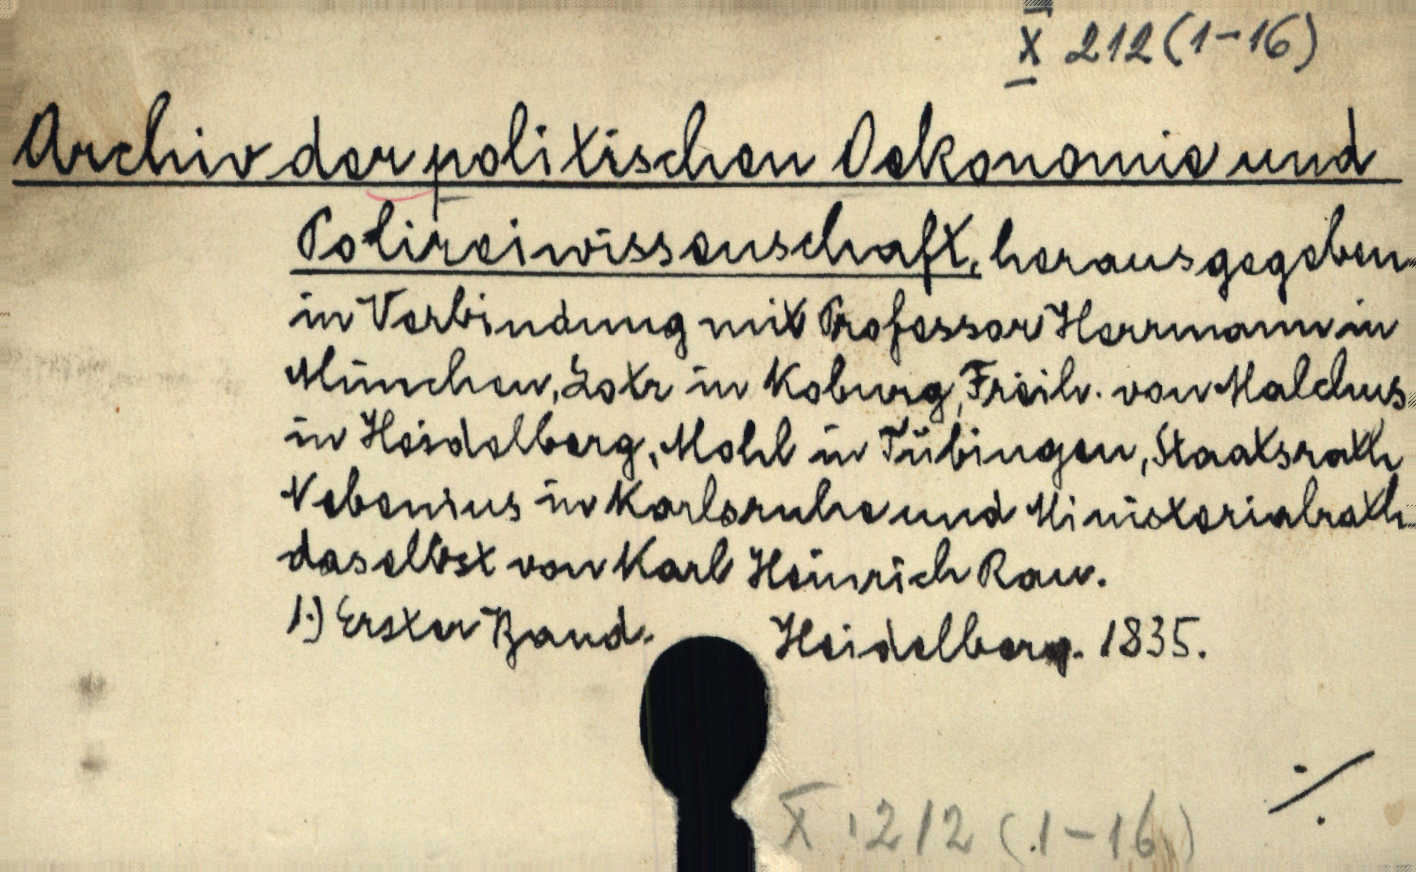 X 212 (1-16)
Archiv der politischen Oekonomie und
Polizeiwissenschaft, herausgegeben
in Verbindung mit Professor Herrmann in
München, Lotz in Koburg, Freih. von Malchus
in Heidelberg, Mohl in Tübingen, Staatsrath
Nebenius in Karlsruhe und Ministerialrath
daselbst von Karl Heinrich Rau.
1.) Erster Band. Heidelberg. 1835.
./.
X 212 (1-16)